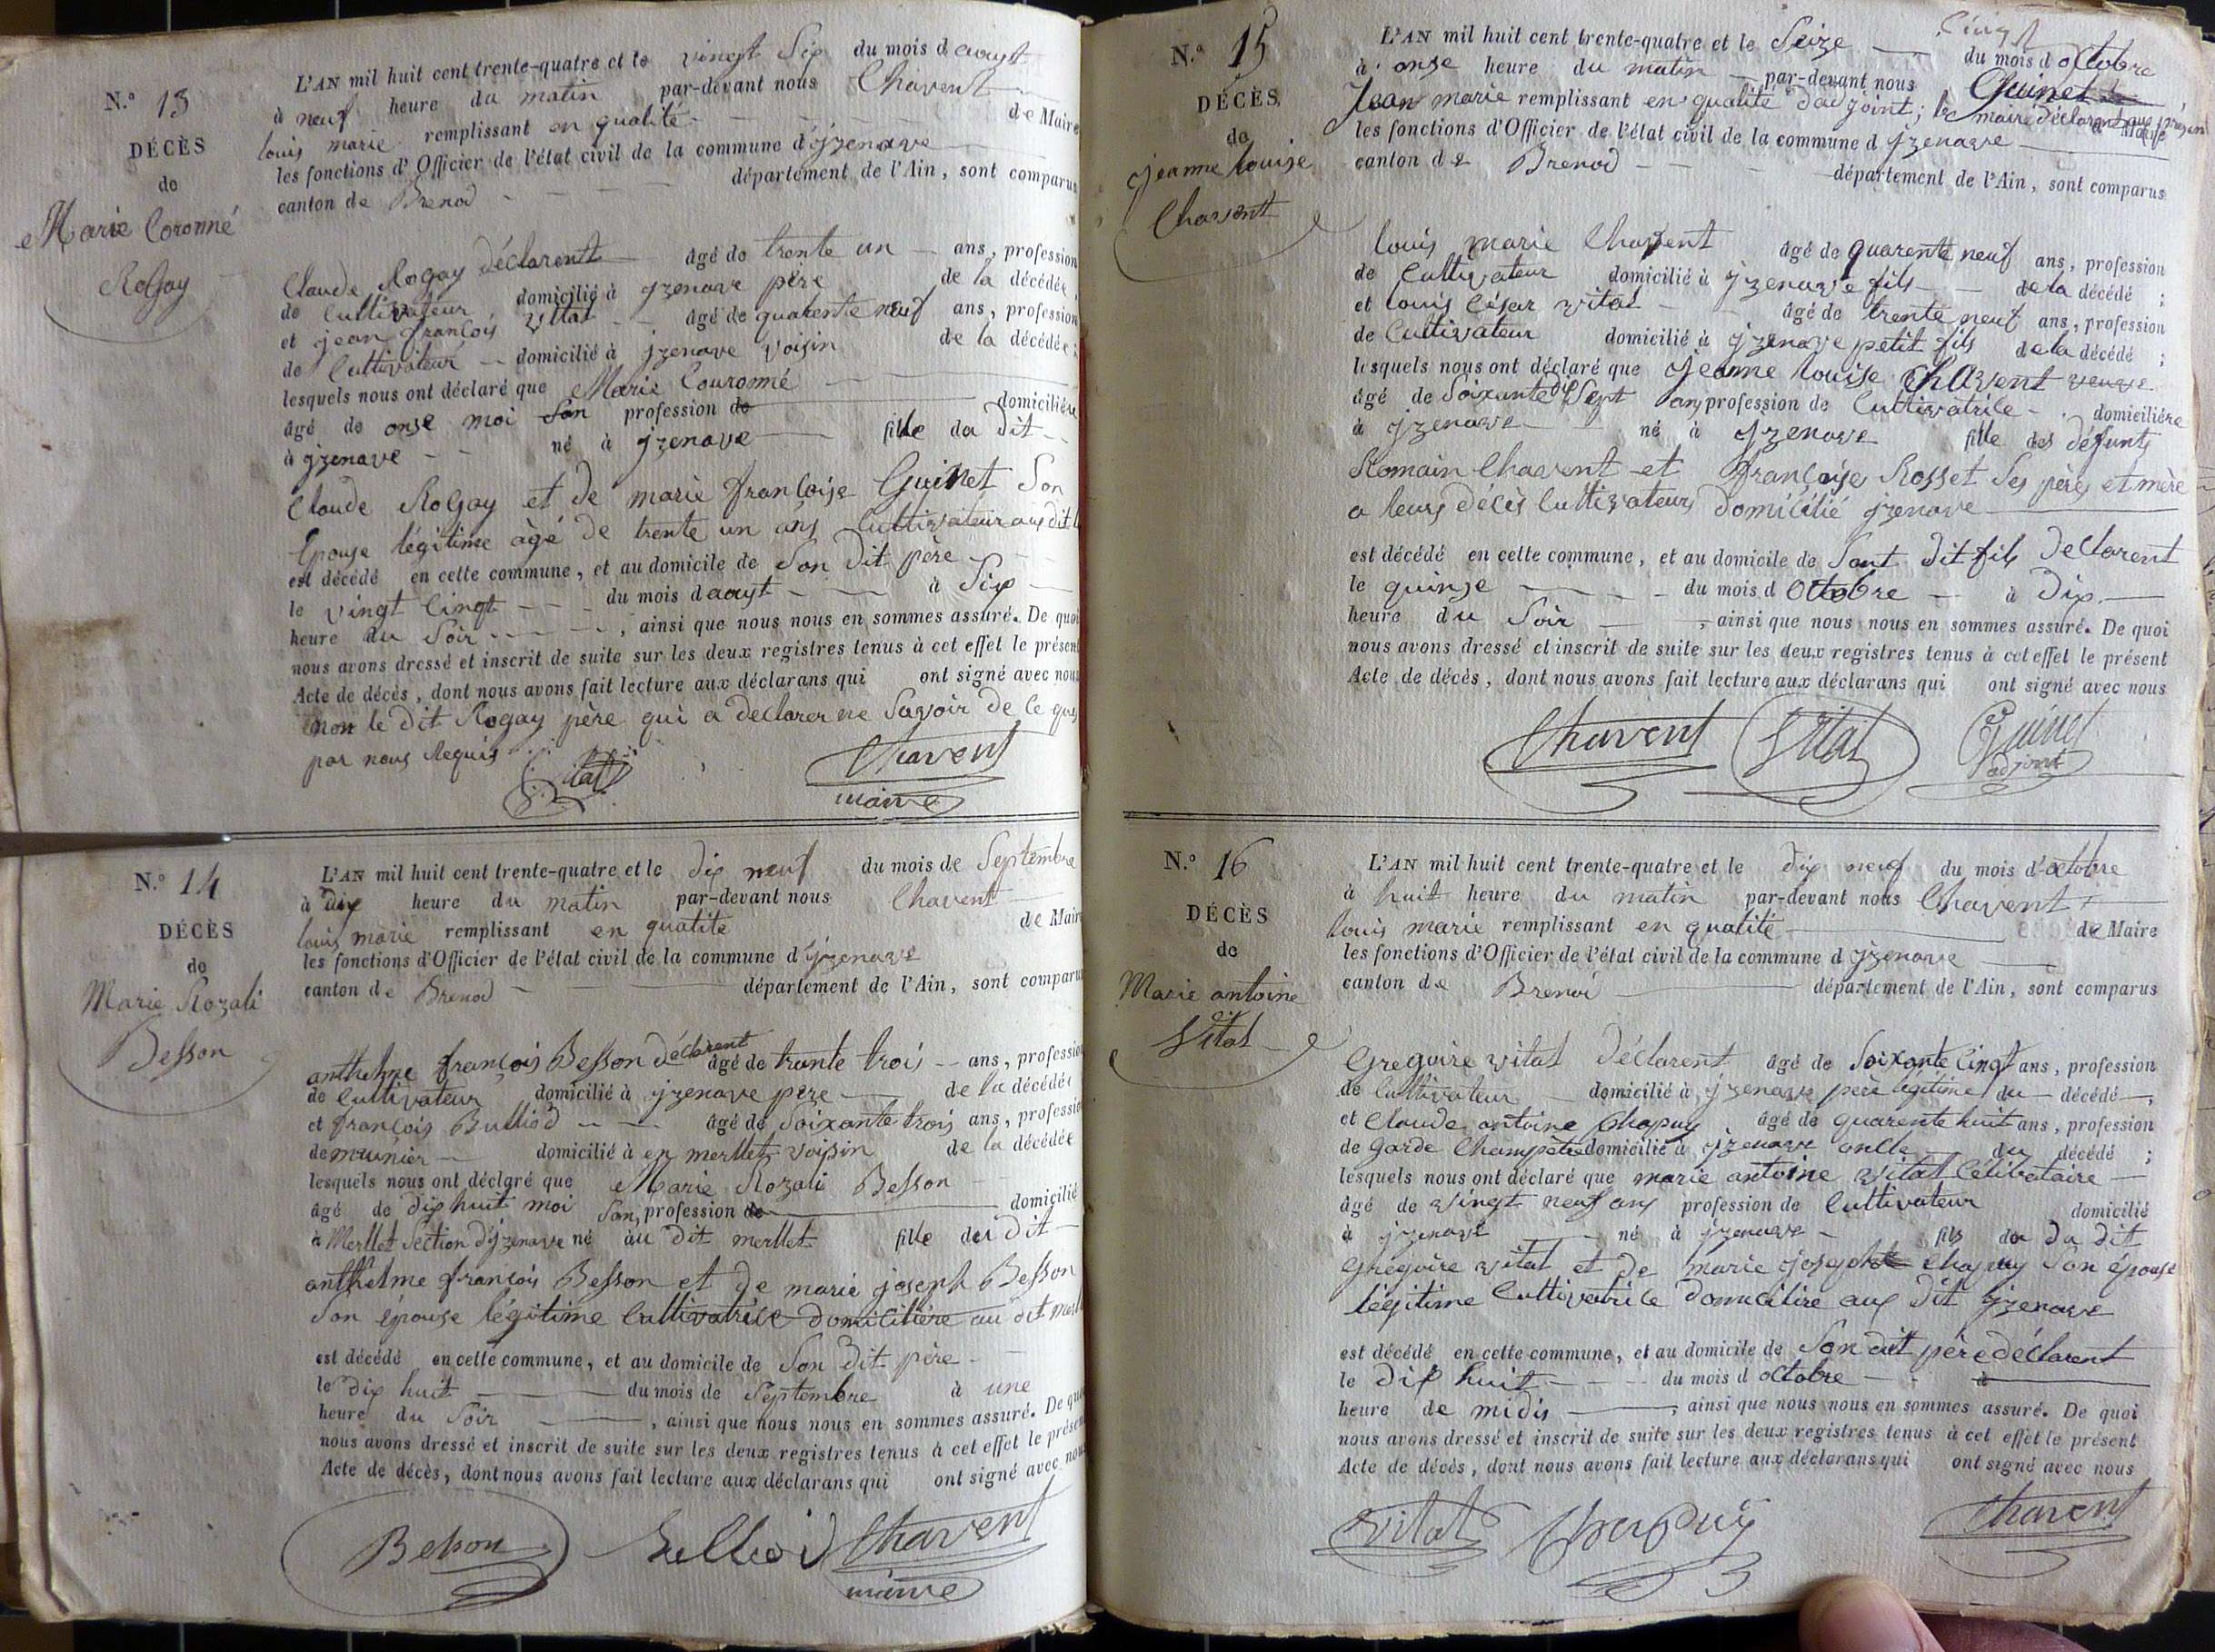 N.º 13
DÉCÈS
de
Marie Coronné
Rogay
L'AN mil huit cent trente-quatre et le vingt Six du mois d aoust
à neuf heure du matin par-devant nous Chavent
louis marie remplissant en qualité de Maire
les fonctions d'Officier de l'état civil de la commune d'jzenave
canton de Brenod département de l'Ain, sont comparus
Claude Rogay déclarent âgé de trente un ans, profession
de Cultivateur domicilié à jzenave père de la décédée,
et jean françois vittat âgé de quarente neuf ans, profession
de Cultivateur domicilié à jzenave voisin de la décédée;
lesquels nous ont déclaré que Marie Couronné
âgé de onse moi San profession de domiciliére
à jzenave né à jzenave fille du dit
Claude Rogay et de marie françoise Guinet Son
Epouse légitime àgé de trente un ans Cultivateur aux dit
est décédé en cette commune, et au domicile de Son dit père
le vingt Cinqt du mois d aoust à Six
heure du Soir, ainsi que nous nous en sommes assuré. De quoi
nous avons dressé et inscrit de suite sur les deux registres tenus à cet effet le présent
Acte de décès, dont nous avons fait lecture aux déclarans qui ont signé avec nous
non le dit Rogay père qui a declarer ne Savoir de ce que
par nous Requis
Vitat
Chavent
maire
N.º 14
DÉCÈS
de
Marie Rozali
Besson
L'AN mil huit cent trente-quatre et le dix neuf du mois de Septembre
à dix heure du matin par-devant nous Chavent
louis marie remplissant en qualité de Maire
les fonctions d'Officier de l'état civil de la commune d jzenave
canton de Brenod département de l'Ain, sont comparus
anthelme françois Besson déclarent âgé de trante trois ans, profession
de Cultivateur domicilié à jzenave père de la décédée
et françois Bulliod âgé de Soixante trois ans, profession
de meunier domicilié à en merllet voisin de la décédée
lesquels nous ont déclaré que Marie Rozali Besson
âgé de dix huit moi San, profession de domicilié
à Merllet Section d'jzenave né au dit merllet fille du dit
anthelme françois Besson et de marie joseph Besson
Son épouse légitime Cultivatrice domicilière au dit
est décédé en cette commune, et au domicile de Son dit père
le dix huit du mois de Septembre à une
heure du Soir, ainsi que nous nous en sommes assuré. De quoi
nous avons dressé et inscrit de suite sur les deux registres tenus à cet effet le présent
Acte de décès, dont nous avons fait lecture aux déclarans qui ont signé avec nous
Besson Bulliod Chavent
maire
N.º 15
DÉCÈS
de
jeanne louise
Chavent
L'AN mil huit cent trente-quatre et le Seize du mois d octobre
à onse heure du matin par-devant nous Guinet
Jean marie remplissant en qualité d'adjoint; le maire déclarent de Maire
les fonctions d'Officier de l'état civil de la commune d jzenave
canton de Brenod département de l'Ain, sont comparus
louis marie Chavent âgé de quarente neuf ans, profession
de Cultivateur domicilié à jzenave fils de la décédé;
et louis César vitat âgé de trente neuf ans, profession
de Cultivateur domicilié à jzenave petit fils de la décédé;
lesquels nous ont déclaré que jeanne louise Chavent veuve
âgé de Soixante dix Sept ans profession de Cultivatrice domiciliére
à jzenave né à jzenave fille des défunts
Romain Chavent et françoise Rosset Ses pères et mère
a leurs décès Cultivateurs domicilié jzenave
est décédé en cette commune, et au domicile de Sont dit fils Déclarent
le quinse du mois d Octobre à dix
heure du Soir, ainsi que nous nous en sommes assuré. De quoi
nous avons dressé et inscrit de suite sur les deux registres tenus à cet effet le présent
Acte de décès, dont nous avons fait lecture aux déclarans qui ont signé avec nous
Chavent Vitat Guinet
adjoint
N.º 16
DÉCÈS
de
Marie antoine
Vitat
L'AN mil huit cent trente-quatre et le dix neuf du mois d'octobre
à huit heure du matin par-devant nous Chavent
louis marie remplissant en qualité de Maire
les fonctions d'Officier de l'état civil de la commune d jzenave
canton de Brenod département de l'Ain, sont comparus
Gregoire vitat déclarent âgé de Soixante Cinqt ans, profession
de Cultivateur domicilié à jzenave père légitime du décédé,
et Claude antoine Chapuy âgé de quarente huit ans, profession
de Garde Champètre domicilié à jzenave oncle du décédé;
lesquels nous ont déclaré que marie antoine vitat Célibataire
âgé de vingt neuf ans profession de Cultivateur domicilié
à jzenave né à jzenave fils du du dit
Grégoire vitat et de marie joseph Chapuy Son épouse
légitime Cultivatrice domicilière aux dit jzenave
est décédé en cette commune, et au domicile de Son dit père déclarent
le dix huit du mois d octobre à
heure de midis, ainsi que nous nous en sommes assuré. De quoi
nous avons dressé et inscrit de suite sur les deux registres tenus à cet effet le présent
Acte de décès, dont nous avons fait lecture aux déclarans qui ont signé avec nous
Vitat Chapuy Chavent